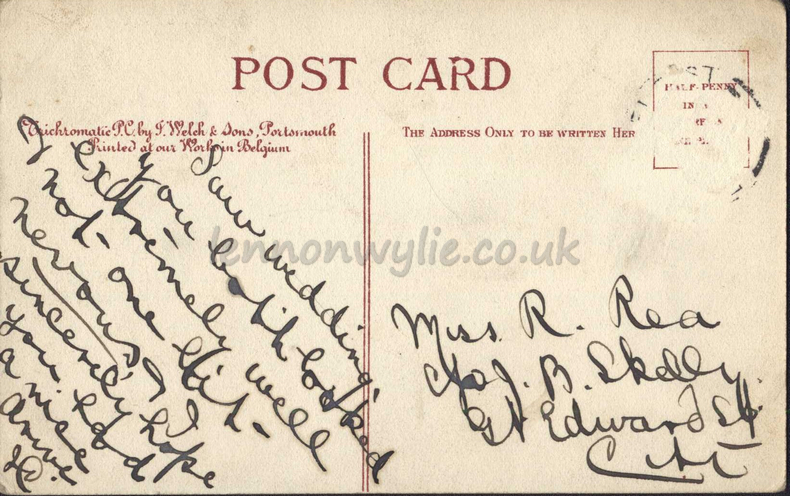 POST CARD
Trichromatic P.C. by J. Welch & Sons, Portsmouth
Printed at our Works in Belgium
THE ADDRESS ONLY TO BE WRITTEN HER
HALF-PENNY
IN
lennonwylie.co.uk
Saw wedding,
you both looked
extremely well
& not one bit
nervous, I
sincerely hope
you had
a nice
Miss R. Rea
c/o J. B. Skelly
Gt Edward St
City